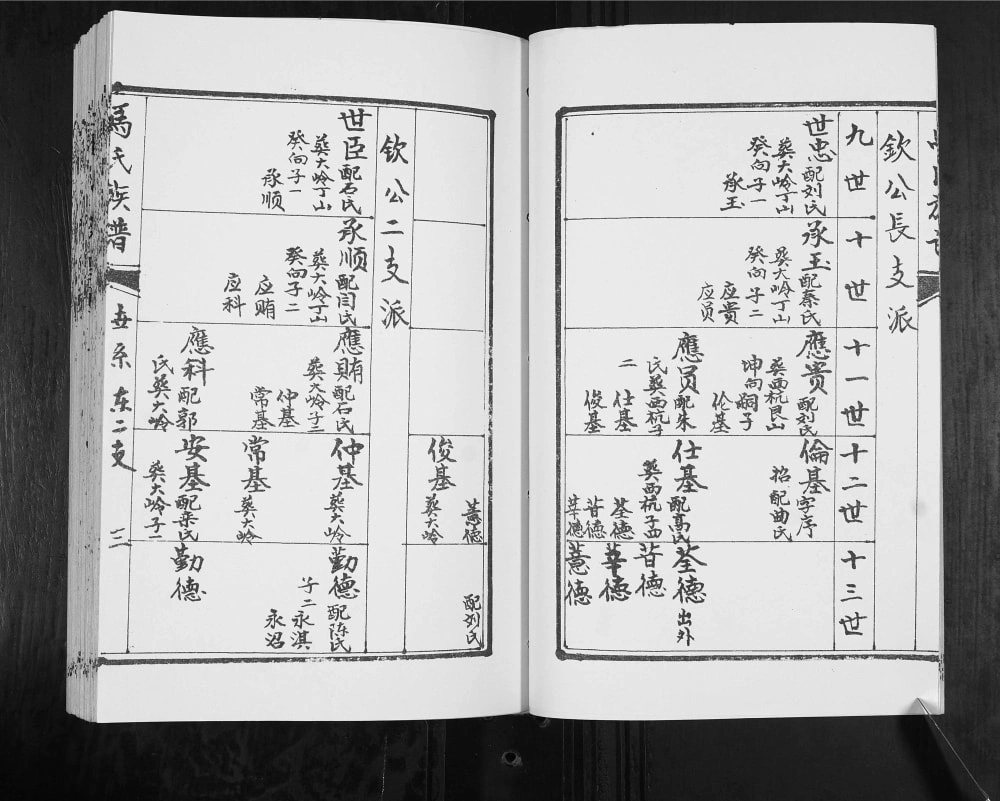 欽公長支派
九世
十世
十一世
十二世
十三世
世忠配刘氏
葬大岭丁山
癸向子一
承玉
承玉配秦氏
葬大岭丁山
癸向子二
应贵
应员
應贵配刘氏
葬西杭艮山
坤向嗣子
伦基
應员配朱
氏葬西杭子
二 仕基
俊基
倫基字序
招配曲氏
仕基配高氏
葬西杭子四
荃德
苷德
莘德
荃德出外
苷德
莘德
薏德
薏德
配刘氏
俊基葬大岭
欽公二支派
世臣配石氏
葬大岭丁山
癸向子一
承顺
承顺配闫氏
葬大岭丁山
癸向子二
应贿
应科
應賄配石氏
葬大岭子二
仲基
常基
應科配郭
氏葬大岭
仲基葬大岭
常基葬大岭
安基配栾氏
葬大岭子一
勤德配陈氏
子二永淇
永沼
勤德
馮氏族谱
世系 東二支
三